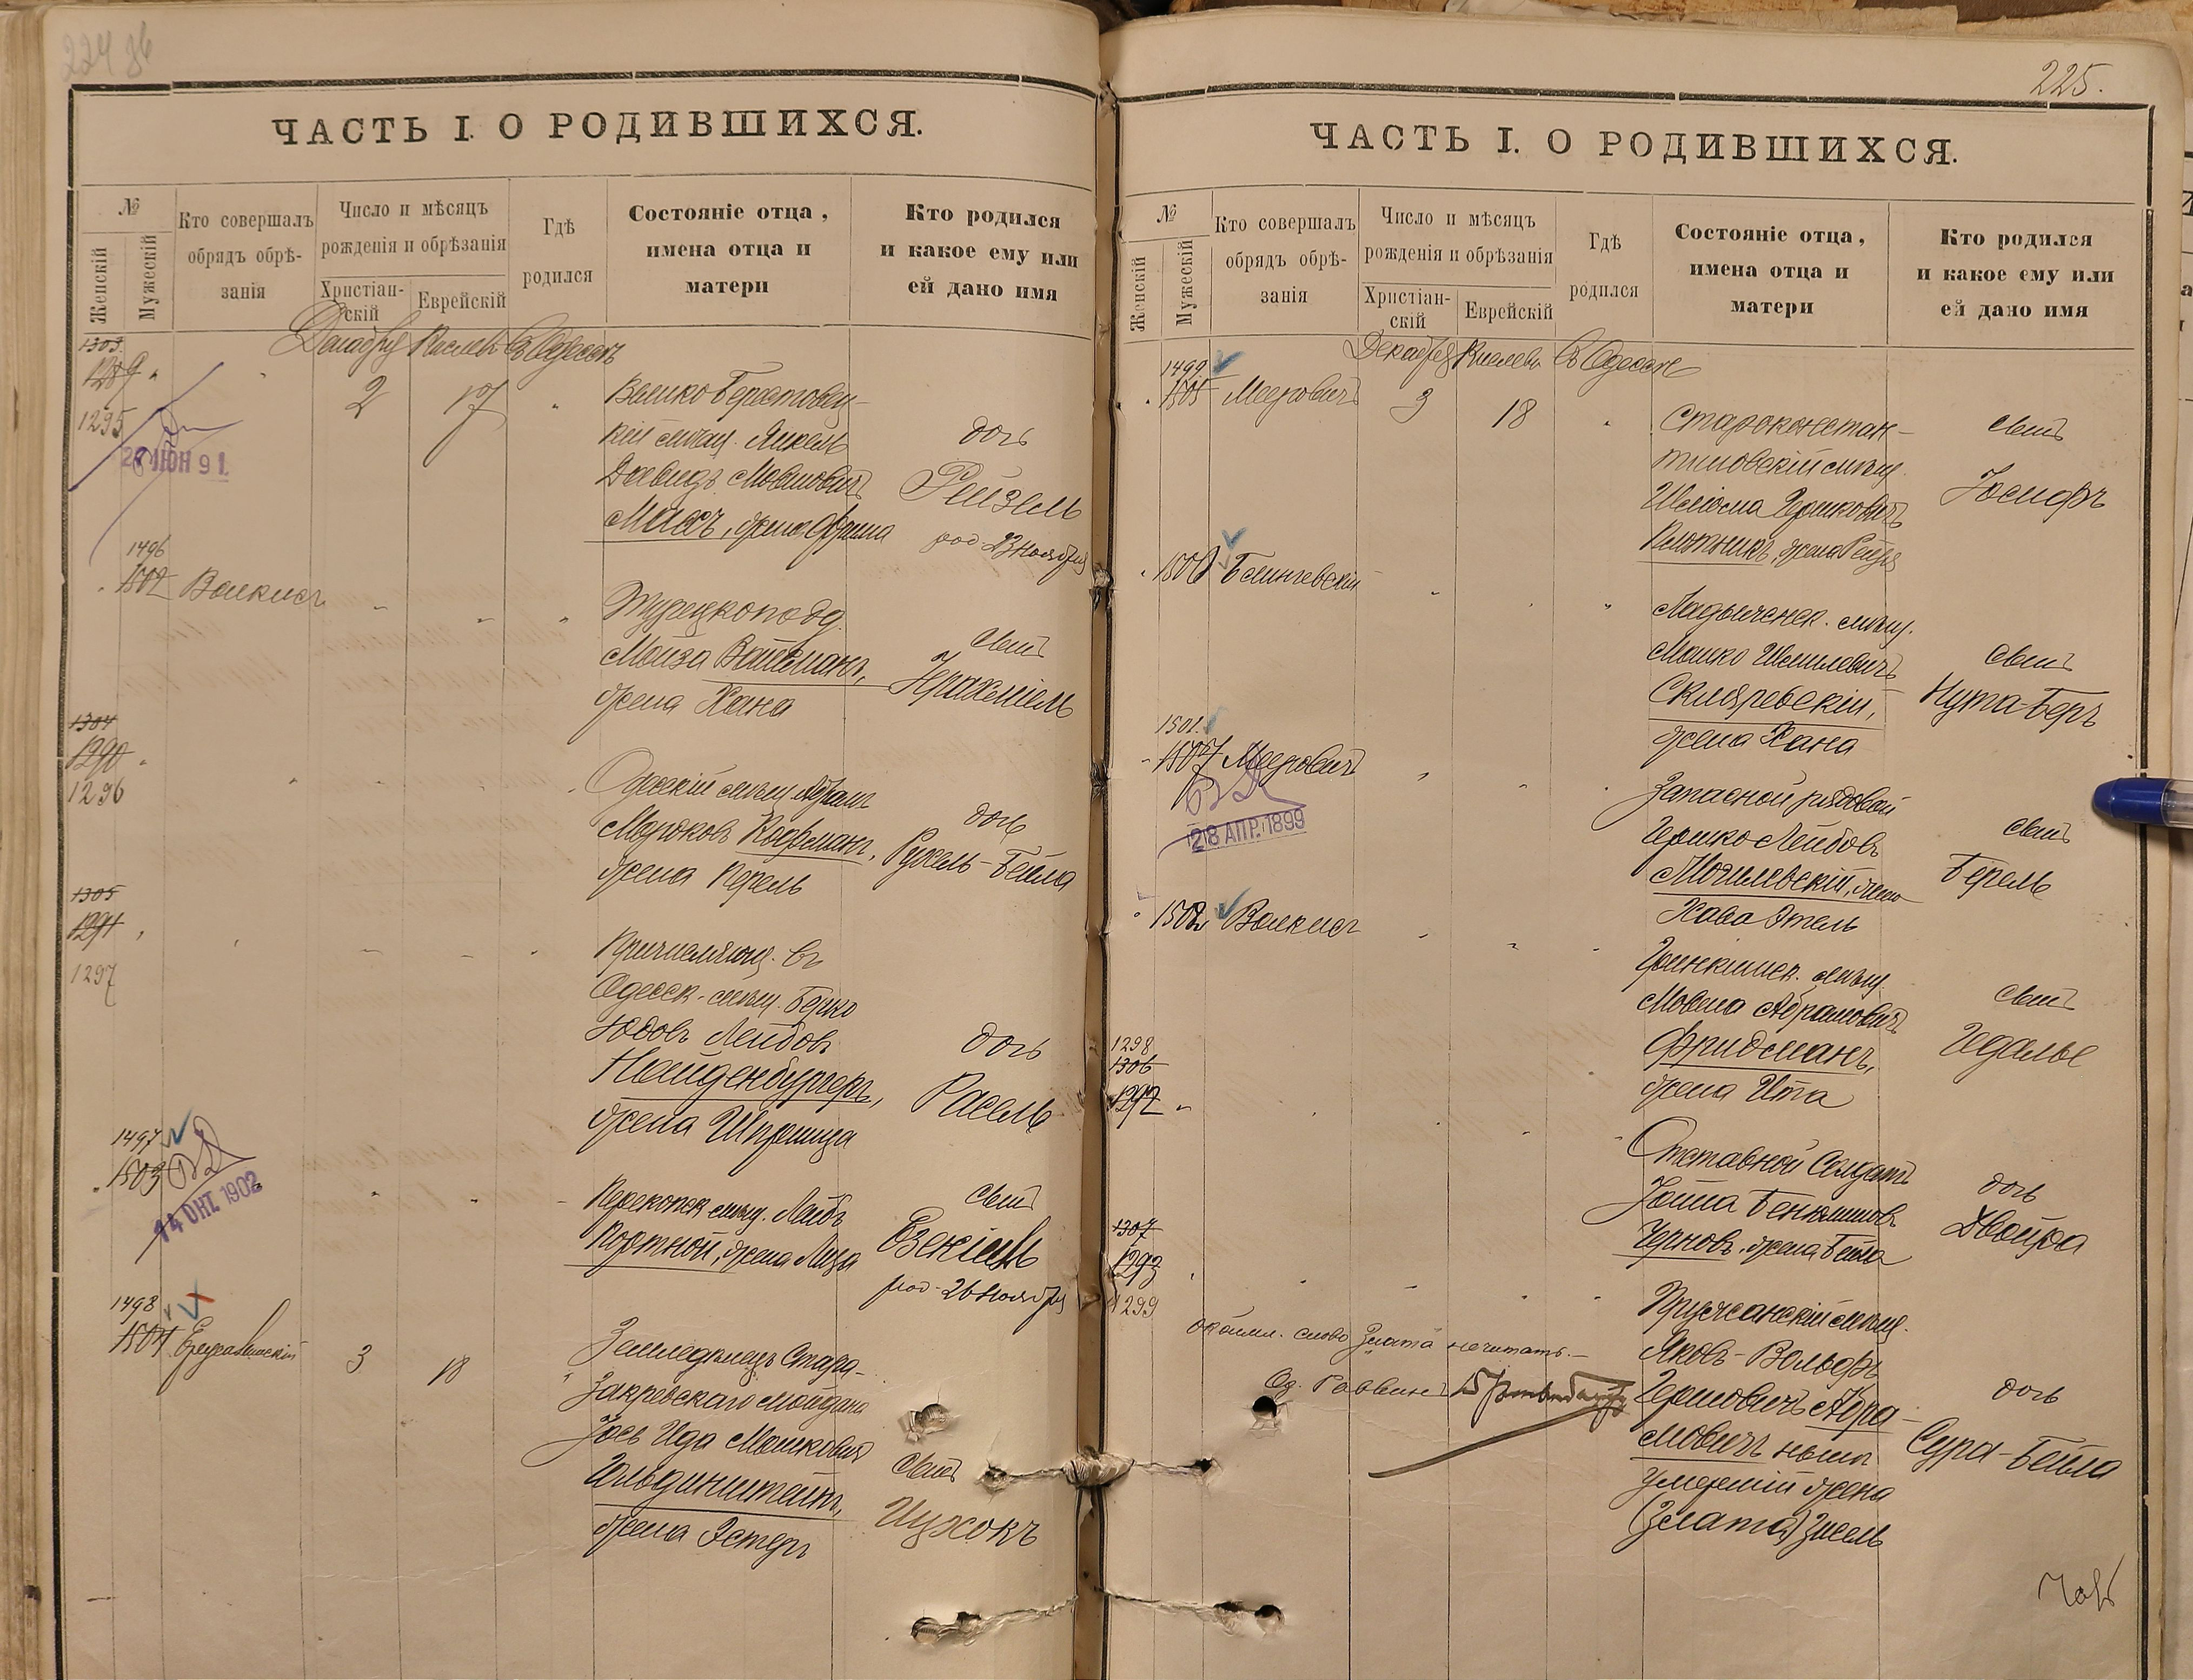 224 об
ЧАСТЬ I. О РОДИВШИХСЯ.
№
Женскій
Мужескій
Кто совершалъ
обрядъ обрѣ-
занія
Число и мѣсяцъ
рожденія и обрѣзанія
Христіан-
скій
Еврейскій
Гдѣ
родился
Состояніе отца,
имена отца и
матери
Кто родился
и какое ему или
ей дано имя
Декабря Кислевъ Въ Одессѣ
1303
1289
1295
2 17
Велико Берестовец-
кій мѣщ. Янкель
Давидъ Мовшовичъ
Массъ, жена Фрима
дочь
Рейзель
род. 23 Ноября
ЮН 91.
1496
1502 Волкисъ
Турецкопод.
Мойза Вайсманъ,
жена Хана
сынъ
Ирахміель
1304
1290
1296
Одесскій мѣщ. Абрамъ
Мордковъ Кофманъ,
жена Перель
дочь
Рухель-Бейла
1305
1291
1297
Причисляющ. въ
Одесск. мѣщ. Берко
Юдовъ Лейбовъ
Найденбургеръ,
жена Шпринца
дочь
Расель
1497
1503
14 ОКТ. 1902
Перекопск мѣщ. Лейбъ
Портной, жена Лиза
сынъ
Езекіель
род. 26 Ноября
1498
1504 Ерусалимскій 3 18
Земледѣлецъ Старо-
Закревскаго Мойдана
Іось Ида Мошковичъ
Гольдинштейнъ,
жена Эстеръ
сынъ
Ицхокъ
225.
ЧАСТЬ I. О РОДИВШИХСЯ.
№
Женскій
Мужескій
Кто совершалъ
обрядъ обрѣ-
занія
Число и мѣсяцъ
рожденія и обрѣзанія
Христіан-
скій
Еврейскій
Гдѣ
родился
Состояніе отца,
имена отца и
матери
Кто родился
и какое ему или
ей дано имя
Декабря Кислева Въ Одессѣ
1499
1505 Мееровичъ 3 18
Староконстан-
тиновскій мѣщ.
Шлёма Гершковичъ
Плотникъ, жена Рейзя
сынъ
Іосифъ
1506 Бѣлинчевскій
Ладыженск. мѣщ.
Мошко Шмилевичъ
Скляревскій,
жена Хана
сынъ
Нута-Беръ
1501
1507 Мееровичъ
28 АПР. 1899
Запасной рядовой
Гершко Лейбовъ
Могилевскій, жена
Хава Этель
сынъ
Берель
1508 Волкисъ
мѣщ.
Мовша Абрамовичъ
Фридманъ,
жена Ита
сынъ
Гедалье
1298
1306
1292
Отставной Солдатъ
Іойна Беньминовъ
Черновъ, жена Бейла
дочь
Двойра
1307
1293
1299
Пружсанскій мѣщ.
Яковъ-Вольфъ
Гершовичъ Абра-
мовичъ нынѣ
умершій жена
(Злата) Зисель
дочь
Сура-Бейла
слово Злата не читать.—
Од. Раввинъ